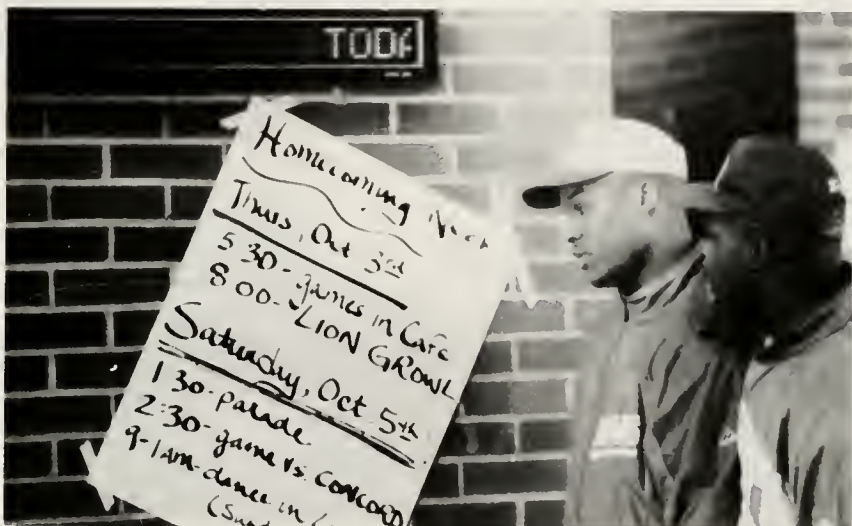 TODA
Homecoming
Thurs, Oct 3rd
5:30 - games in Cafe
8:00 - LION GROWL
Saturday, Oct 5th
1:30 - parade
2:30 - game vs. CONCORD
9-1am - dance in